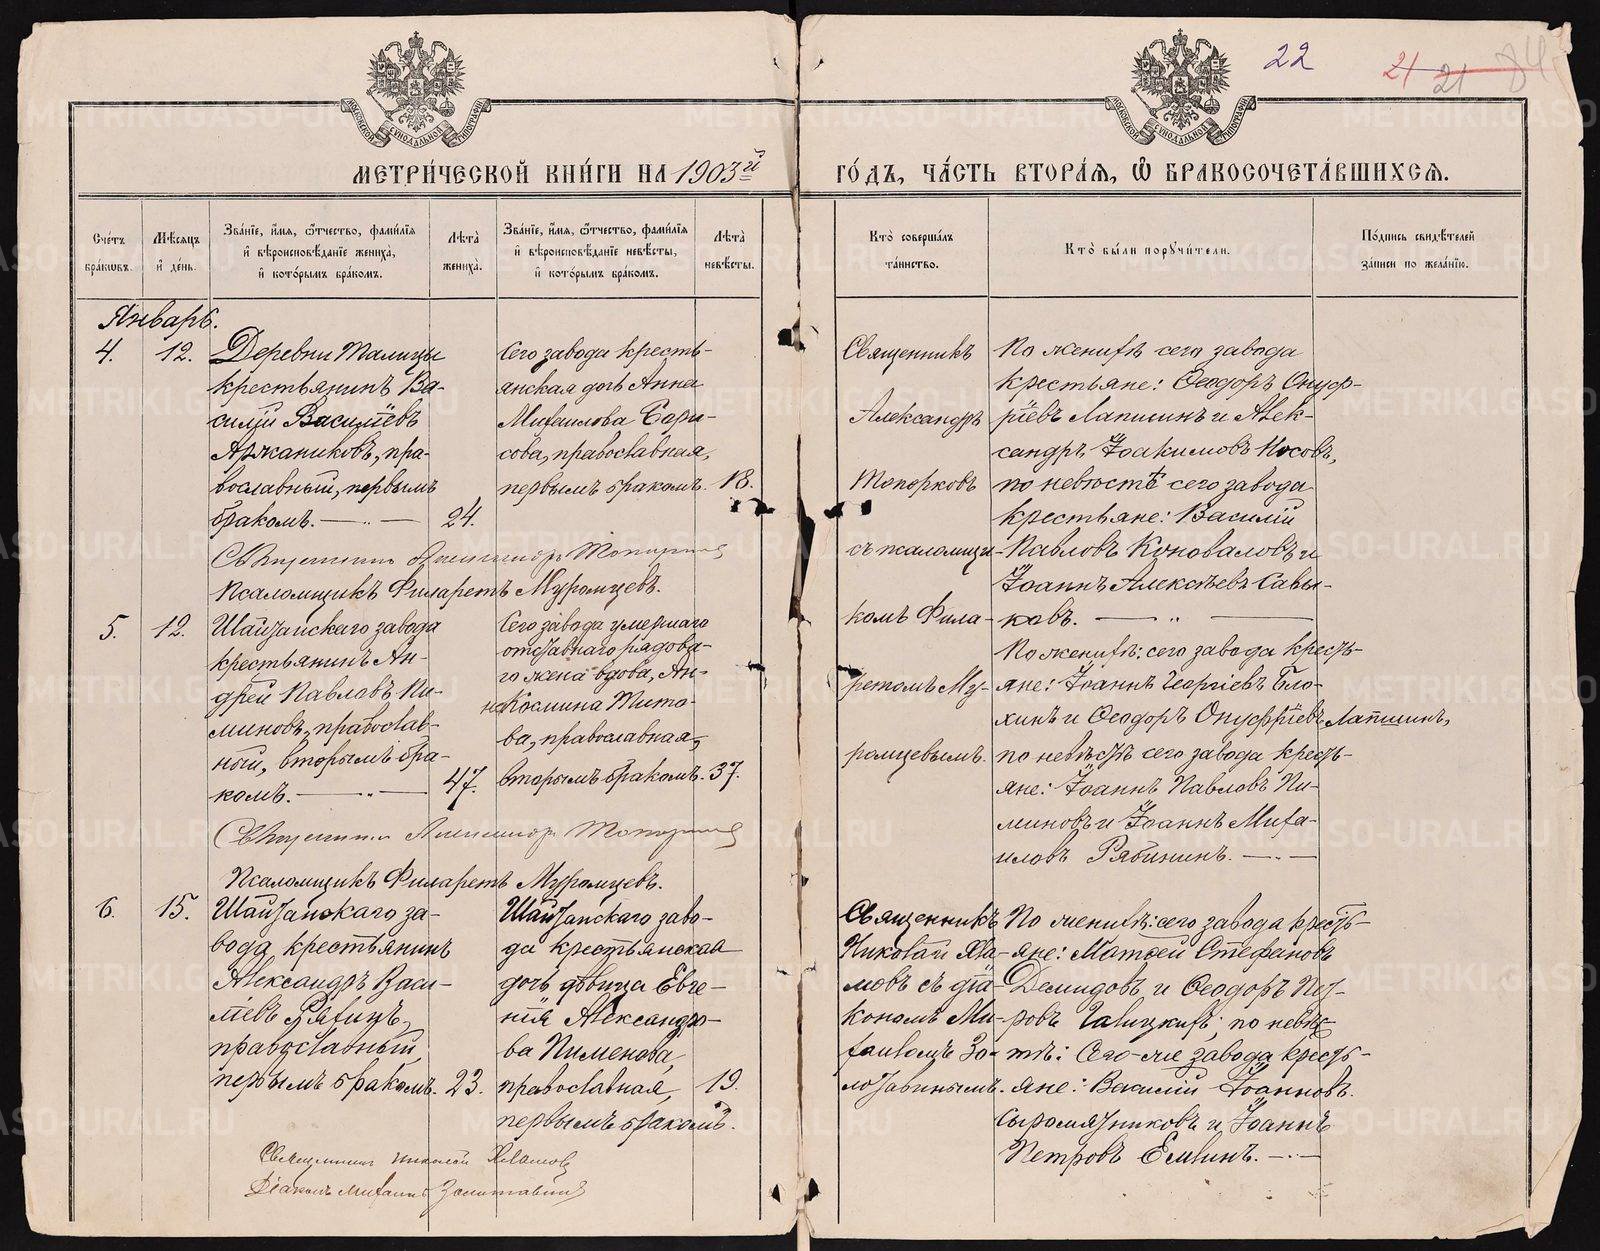 22 21 21 84
МЕТРИ́ЧЕСКОЙ КНИ́ГИ НА 1903й ГО́ДЪ, ЧА́СТЬ ВТОРА́Я, Ѽ БРАКОСОЧЕТА́ВШИХСЯ.
Сче́тъ бра́ковъ.
Мѣ́сяцъ и҆ де́нь.
Зва́нїе, и҆́мя, ѻ҆́тчество, фами́лїя
и҆ вѣроисповѣ́данїе жениха̀,
и҆ кото́рымъ бра́комъ.
Лѣта̀ жениха̀.
Зва́нїе, и҆́мя, ѻ҆́тчество, фами́лїя
и҆ вѣроисповѣ́данїе невѣ́сты,
и҆ кото́рымъ бра́комъ.
Лѣта̀ невѣ́сты.
Кто̀ соверша́лъ
та́инство.
Кто̀ бы́ли поручи́тели.
По́дпись свидѣ́телей
за́писи по жела́нїю.
Январь.
4.
12.
Деревни Талицы
крестьянинъ Ва-
силій Василіевъ
Аржанниковъ, пра-
вославный, первымъ
бракомъ.
24.
Сего завода кресть-
янская дочь Анна
Михаилова Бори-
сова, православная,
первымъ бракомъ.
18.
Священникъ
Александръ
Топорковъ
съ псаломщи-
комъ Фила-
ретомъ Му-
ромцевымъ.
По женихѣ сего завода
крестьяне: Ѳеодоръ Онуф-
ріевъ Лапшинъ и Алек-
сандръ Іоакимовъ Носовъ,
по невѣстѣ сего завода
крестьяне: Василій
Павловъ Коноваловъ и
Іоаннъ Алексѣевъ Савы-
ковъ.
Священникъ Александръ Топорковъ
Псаломщикъ Филаретъ Муромцевъ.
5.
12.
Шайтанскаго завода
крестьянинъ Ан-
дрей Павловъ Пи-
миновъ, православ-
ный, вторымъ бра-
комъ.
47.
Сего завода умершаго
отставнаго рядова-
го жена вдова, Ан-
на Космина Тито-
ва, православная,
вторымъ бракомъ.
37.
По женихѣ: сего завода кресть-
яне: Іоаннъ Георгіевъ Бло-
хинъ и Ѳеодоръ Онуфріевъ Лапшинъ,
по невѣстѣ сего завода кресть-
яне: Іоаннъ Павловъ Пи-
миновъ и Іоаннъ Миха-
иловъ Рябининъ.
Священникъ Александръ Топорковъ
Псаломщикъ Филаретъ Муромцевъ.
6.
15.
Шайтанскаго за-
вода крестьянинъ
Александръ Васи-
ліевъ
православный,
первымъ бракомъ.
23.
Шайтанскаго заво-
да крестьянская
дочь дѣвица Евге-
нія Александро-
ва Пименова,
православная,
первымъ бракомъ.
19.
Священникъ
Николай Хла-
мовъ съ діа-
кономъ Ми-
хаиломъ Зо-
лотавинымъ.
По женихѣ: сего завода кресть-
яне: Матѳей Стефановъ
Демидовъ и Ѳеодоръ Пет-
ровъ Галицкихъ; по невѣс-
тѣ: Сего-же завода кресть-
яне: Василій Іоанновъ
Сыромятниковъ и Іоаннъ
Петровъ Емлинъ.
Священникъ Николай Хламовъ
Діаконъ Михаилъ Золотавинъ
METRIKI.GASO-URAL.RU